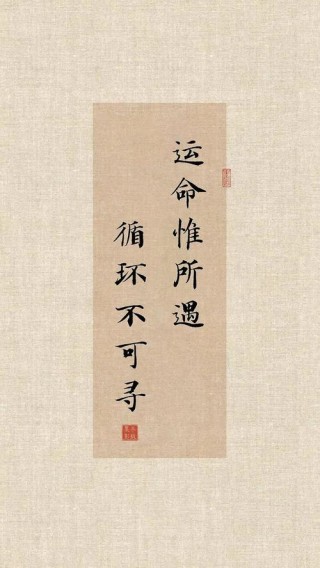 运命惟所遇
循环不可寻